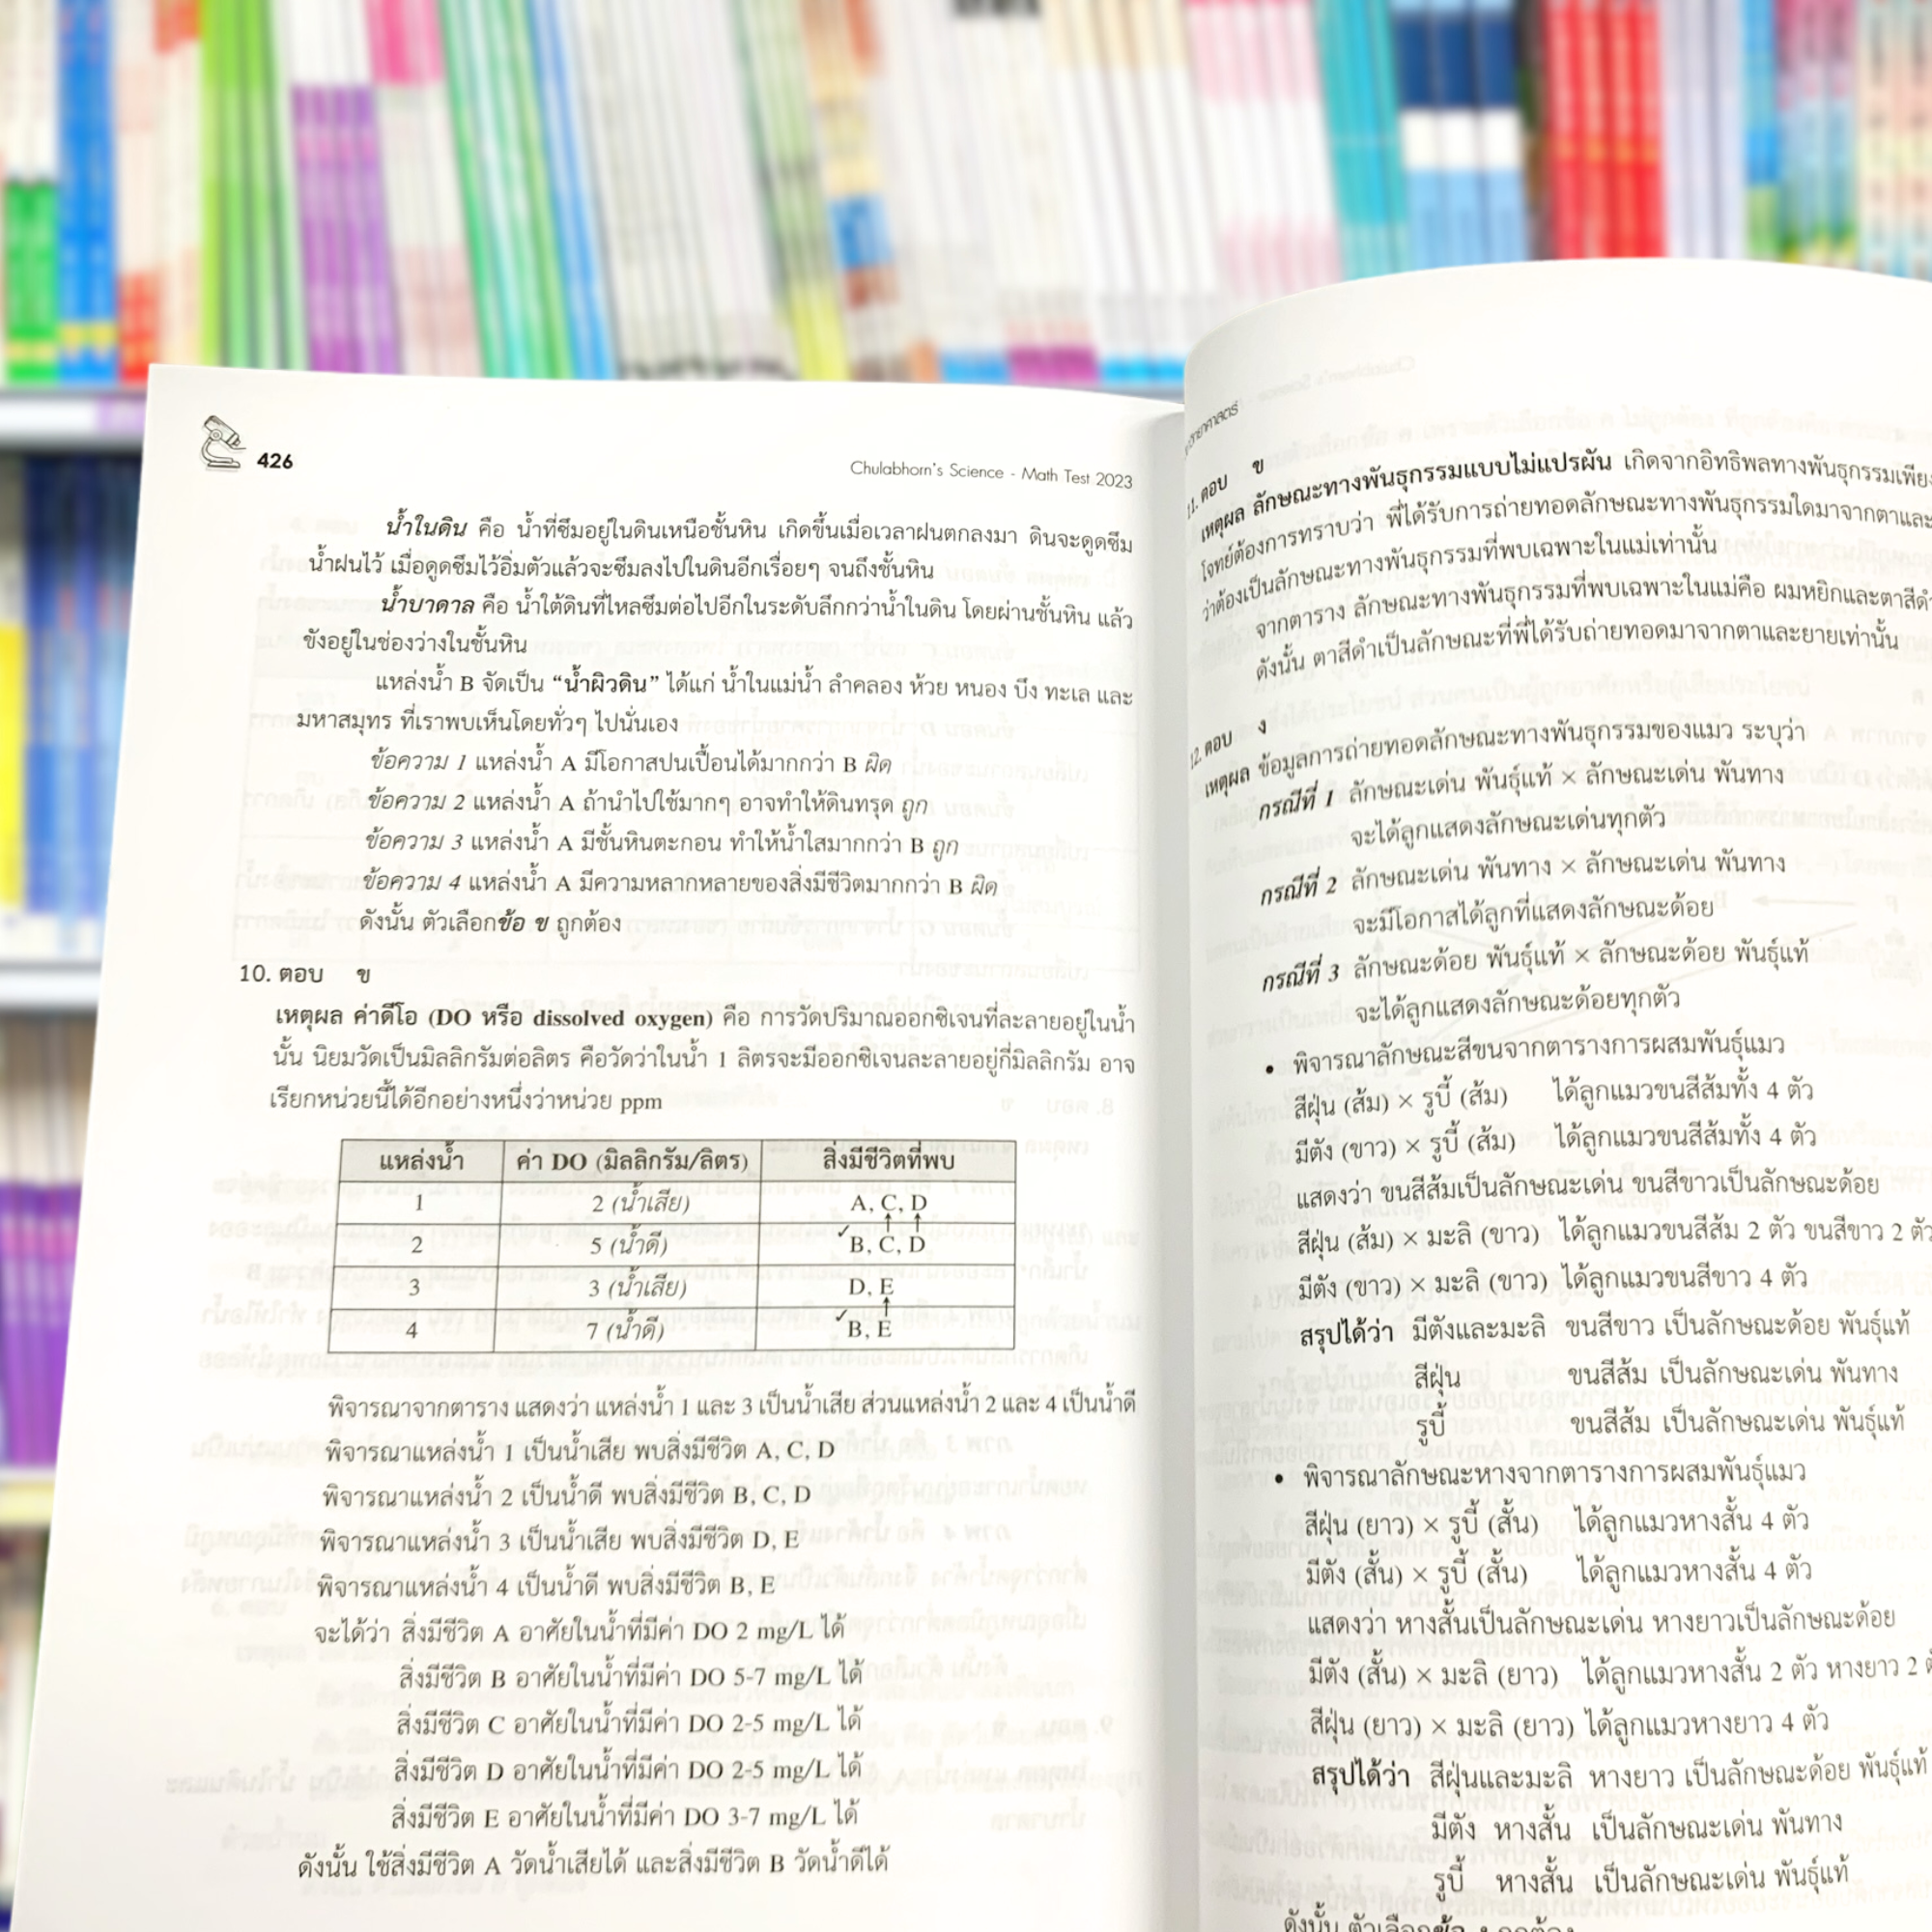 426
Chulabhorn's Science - Math Test 2023
น้ำในดิน คือ น้ำที่ซึมอยู่ในดินเหนือชั้นหิน เกิดขึ้นเมื่อเวลาฝนตกลงมา ดินจะดูดซึม
น้ำฝนไว้ เมื่อดูดซึมไว้อิ่มตัวแล้วจะซึมลงไปในดินอีกเรื่อยๆ จนถึงชั้นหิน
น้ำบาดาล คือ น้ำใต้ดินที่ไหลซึมต่อไปอีกในระดับลึกกว่าน้ำในดิน โดยผ่านชั้นหิน แล้ว
ขังอยู่ในช่องว่างในชั้นหิน
แหล่งน้ำ B จัดเป็น “น้ำผิวดิน” ได้แก่ น้ำในแม่น้ำ ลำคลอง ห้วย หนอง บึง ทะเล และ
มหาสมุทร ที่เราพบเห็นโดยทั่วๆ ไปนั่นเอง
ข้อความ 1 แหล่งน้ำ A มีโอกาสปนเปื้อนได้มากกว่า B ผิด
ข้อความ 2 แหล่งน้ำ A ถ้านำไปใช้มากๆ อาจทำให้ดินทรุด ถูก
ข้อความ 3 แหล่งน้ำ A มีชั้นหินตะกอน ทำให้น้ำใสมากกว่า B ถูก
ข้อความ 4 แหล่งน้ำ A มีความหลากหลายของสิ่งมีชีวิตมากกว่า B ผิด
ดังนั้น ตัวเลือกข้อ ข ถูกต้อง
10. ตอบ ข
เหตุผล ค่าดีโอ (DO หรือ dissolved oxygen) คือ การวัดปริมาณออกซิเจนที่ละลายอยู่ในน้ำ
นั้น นิยมวัดเป็นมิลลิกรัมต่อลิตร คือวัดว่าในน้ำ 1 ลิตรจะมีออกซิเจนละลายอยู่กี่มิลลิกรัม อาจ
เรียกหน่วยนี้ได้อีกอย่างหนึ่งว่าหน่วย ppm
แหล่งน้ำ ค่า DO (มิลลิกรัม/ลิตร) สิ่งมีชีวิตที่พบ
1 2 (น้ำเสีย) A, C, D
2 5 (น้ำดี) ✓B, C, D
3 3 (น้ำเสีย) D, E
4 7 (น้ำดี) ✓B, E
พิจารณาจากตาราง แสดงว่า แหล่งน้ำ 1 และ 3 เป็นน้ำเสีย ส่วนแหล่งน้ำ 2 และ 4 เป็นน้ำดี
พิจารณาแหล่งน้ำ 1 เป็นน้ำเสีย พบสิ่งมีชีวิต A, C, D
พิจารณาแหล่งน้ำ 2 เป็นน้ำดี พบสิ่งมีชีวิต B, C, D
พิจารณาแหล่งน้ำ 3 เป็นน้ำเสีย พบสิ่งมีชีวิต D, E
พิจารณาแหล่งน้ำ 4 เป็นน้ำดี พบสิ่งมีชีวิต B, E
จะได้ว่า สิ่งมีชีวิต A อาศัยในน้ำที่มีค่า DO 2 mg/L ได้
สิ่งมีชีวิต B อาศัยในน้ำที่มีค่า DO 5-7 mg/L ได้
สิ่งมีชีวิต C อาศัยในน้ำที่มีค่า DO 2-5 mg/L ได้
สิ่งมีชีวิต D อาศัยในน้ำที่มีค่า DO 2-5 mg/L ได้
สิ่งมีชีวิต E อาศัยในน้ำที่มีค่า DO 3-7 mg/L ได้
ดังนั้น ใช้สิ่งมีชีวิต A วัดน้ำเสียได้ และสิ่งมีชีวิต B วัดน้ำดีได้
11. ตอบ ข
เหตุผล ลักษณะทางพันธุกรรมแบบไม่แปรผัน เกิดจากอิทธิพลทางพันธุกรรมเพียง
โจทย์ต้องการทราบว่า พี่ได้รับการถ่ายทอดลักษณะทางพันธุกรรมใดมาจากตาและ
ว่าต้องเป็นลักษณะทางพันธุกรรมที่พบเฉพาะในแม่เท่านั้น
จากตาราง ลักษณะทางพันธุกรรมที่พบเฉพาะในแม่คือ ผมหยิกและตาสีดำ
ดังนั้น ตาสีดำเป็นลักษณะที่พี่ได้รับถ่ายทอดมาจากตาและยายเท่านั้น
12. ตอบ ง
เหตุผล ข้อมูลการถ่ายทอดลักษณะทางพันธุกรรมของแมว ระบุว่า
กรณีที่ 1 ลักษณะเด่น พันธุ์แท้ × ลักษณะเด่น พันทาง
จะได้ลูกแสดงลักษณะเด่นทุกตัว
กรณีที่ 2 ลักษณะเด่น พันทาง × ลักษณะเด่น พันทาง
จะมีโอกาสได้ลูกที่แสดงลักษณะด้อย
กรณีที่ 3 ลักษณะด้อย พันธุ์แท้ × ลักษณะด้อย พันธุ์แท้
จะได้ลูกแสดงลักษณะด้อยทุกตัว
• พิจารณาลักษณะสีขนจากตารางการผสมพันธุ์แมว
สีฝุ่น (ส้ม) × รูบี้ (ส้ม) ได้ลูกแมวขนสีส้มทั้ง 4 ตัว
มีตัง (ขาว) × รูบี้ (ส้ม) ได้ลูกแมวขนสีส้มทั้ง 4 ตัว
แสดงว่า ขนสีส้มเป็นลักษณะเด่น ขนสีขาวเป็นลักษณะด้อย
สีฝุ่น (ส้ม) × มะลิ (ขาว) ได้ลูกแมวขนสีส้ม 2 ตัว ขนสีขาว 2 ตัว
มีตัง (ขาว) × มะลิ (ขาว) ได้ลูกแมวขนสีขาว 4 ตัว
สรุปได้ว่า มีตังและมะลิ ขนสีขาว เป็นลักษณะด้อย พันธุ์แท้
สีฝุ่น ขนสีส้ม เป็นลักษณะเด่น พันทาง
รูบี้ ขนสีส้ม เป็นลักษณะเด่น พันธุ์แท้
• พิจารณาลักษณะหางจากตารางการผสมพันธุ์แมว
สีฝุ่น (ยาว) × รูบี้ (สั้น) ได้ลูกแมวหางสั้น 4 ตัว
มีตัง (สั้น) × รูบี้ (สั้น) ได้ลูกแมวหางสั้น 4 ตัว
แสดงว่า หางสั้นเป็นลักษณะเด่น หางยาวเป็นลักษณะด้อย
มีตัง (สั้น) × มะลิ (ยาว) ได้ลูกแมวหางสั้น 2 ตัว หางยาว 2
สีฝุ่น (ยาว) × มะลิ (ยาว) ได้ลูกแมวหางยาว 4 ตัว
สรุปได้ว่า สีฝุ่นและมะลิ หางยาว เป็นลักษณะด้อย พันธุ์แท้
มีตัง หางสั้น เป็นลักษณะเด่น พันทาง
รูบี้ หางสั้น เป็นลักษณะเด่น พันธุ์แท้
ดังนั้น ตัวเลือกข้อ ง ถูกต้อง